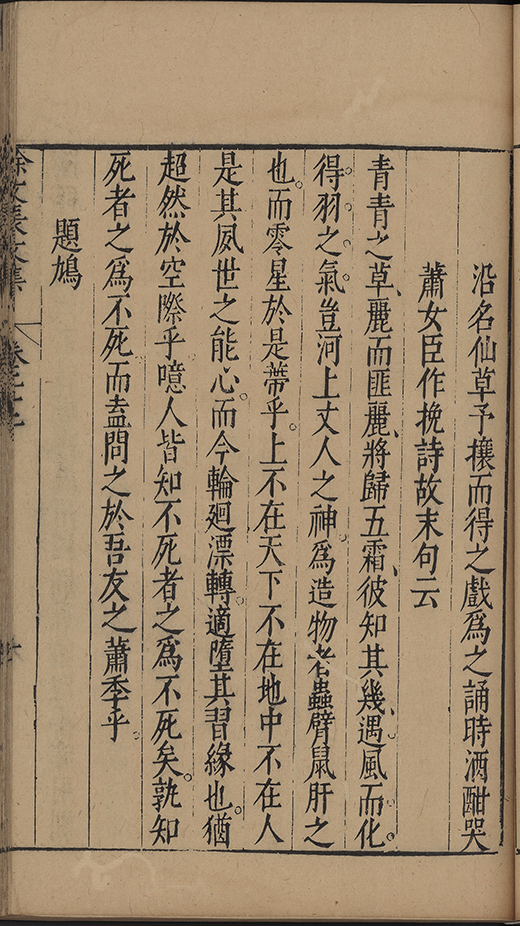 沿名仙草予攘而得之戲爲之誦時酒酣哭
蕭女臣作挽詩故末句云
青青之草、麗而匪麗、將歸五霜、彼知其幾、遇風而化。
得羽之氣。豈河上丈人之神。爲造物者蟲臂鼠肝之
也。而零星於是蔕乎。上不在天下不在地中不在人
是其夙世之能心。而今輪廻漂轉。適墮其習緣也。猶
超然於空際乎噫人皆知不死者之爲不死矣。孰知
死者之爲不死而盍問之於吾友之蕭季乎。
題鳩
徐文長文集